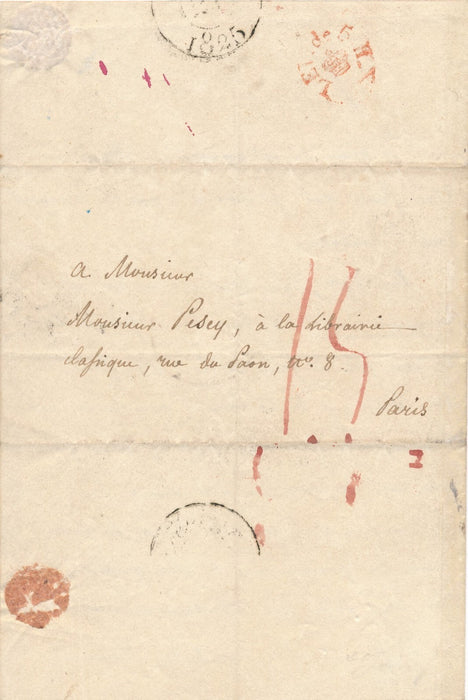 1825
a Monsieur
Monsieur Pesey, à la Librairie
Classique, rue du Paon, n°. 8.
Paris
15